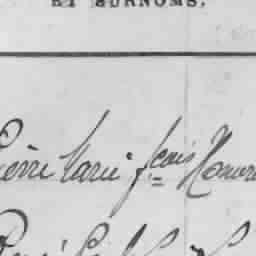 ET SURNOMS.
Pierre Marie f.cois Honoré